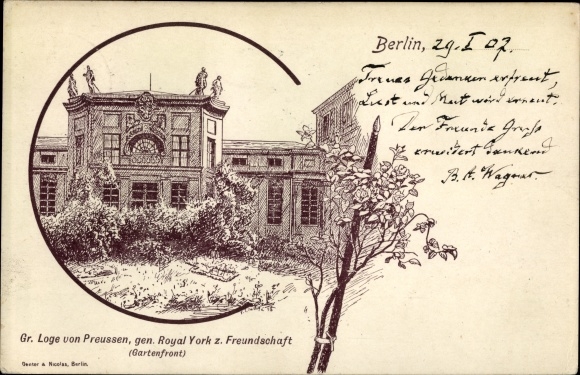 Berlin, 29. I 02.
Treues Gedenken erfreut,
Lust und Mut wird erneut.
Der Freunde Gruß
erwidert dankend
B. A. Wagner
Gr. Loge von Preussen, gen. Royal York z. Freundschaft
(Gartenfront)
Genter & Nicolas, Berlin.